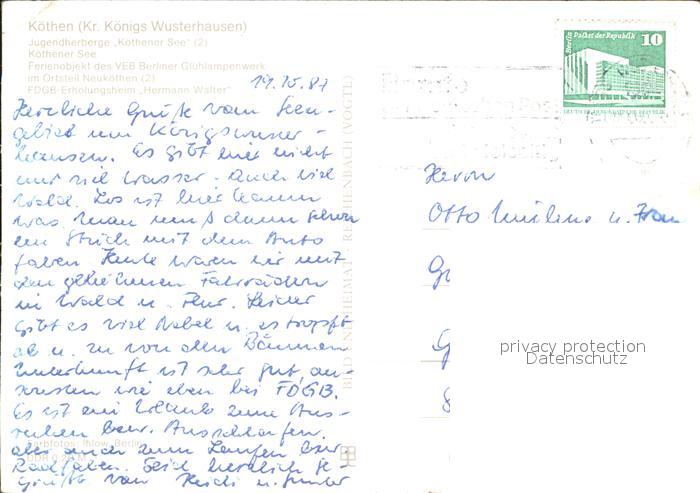 Köthen (Kr. Königs Wusterhausen)
Jugendherberge „Köthener See" (2)
Köthener See
Ferienobjekt des VEB Berliner Glühlampenwerk
im Ortsteil Neuköthen (2)
FDGB-Erholungsheim „Hermann Walter"
19.10.87
Herzliche Grüße vom Seen-
gebiet um Königswuster-
hausen. Es gibt hier nicht
nur viel Wasser. Auch viel
Wald. Los ist hier kaum
was. Man muß dann schon
ein Stück mit dem Auto
fahren. Heute waren wir mit
den geliehenen Fahrrädern
in Wald u. Flur. Leider
gibt es viel Nebel u. es tropft
ab u. zu von den Bäumen
Unterkunft ist sehr gut an-
sonsten wie eben bei FDGB.
Es ist ein Urlaub zum Aus-
ruhen bzw. Ausschlafen,
aber auch zum Laufen bzw.
Radfahren. Seid herzlich ge-
grüßt von Heidi u. Gunter
Farbfotos: Ihlow, Berlin
BILD UND HEIMAT REICHENBACH (VOGTL)
Berlin Palast der Republik
10
DEUTSCHE DEMOKRATISCHE REPUBLIK
Herrn
Otto u. Frau
privacy protection
Datenschutz